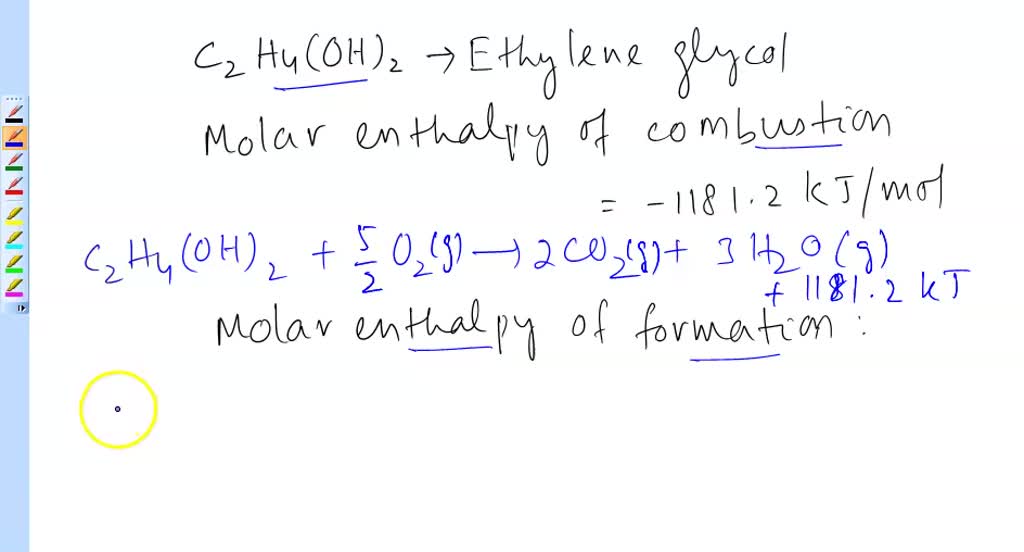 C₂H₄(OH)₂ → Ethylene glycol
Molar enthalpy of combustion
= -1181.2 kJ/mol
C₂H₄(OH)₂ + 5/2 O₂(g) → 2CO₂(g) + 3H₂O(g)
+ 1181.2 kJ
Molar enthalpy of formation :